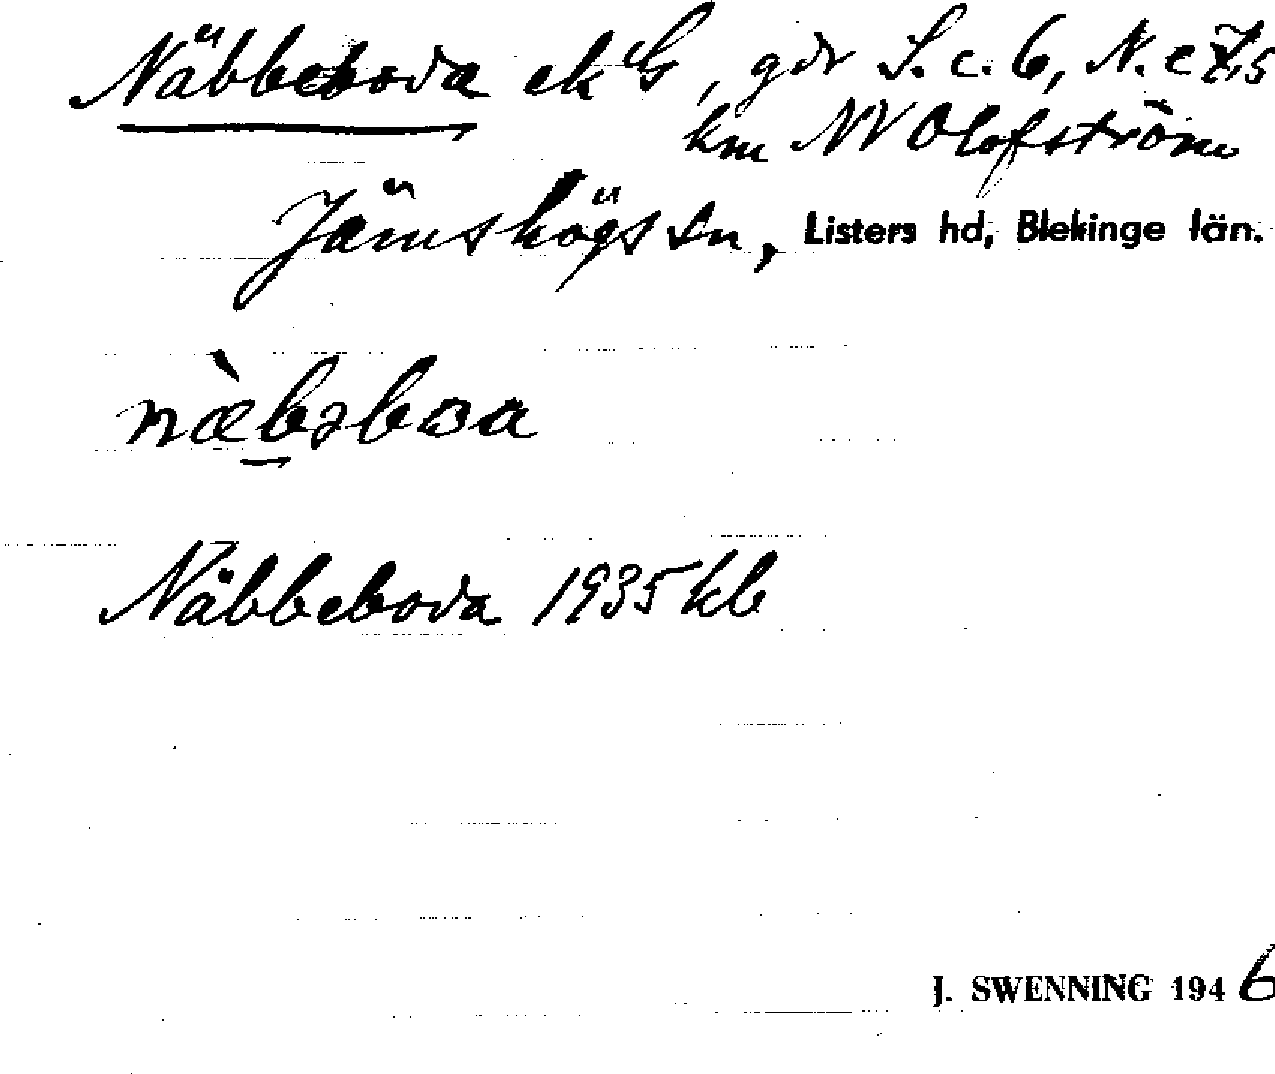 Näbbeboda ek G, gdr S. c. 6, N. c 7,5
km NV Olofström
Jämshögs sn, Listers hd, Blekinge län.
næ̀bəboa
Näbbeboda 1935 kb
J. SWENNING 1946